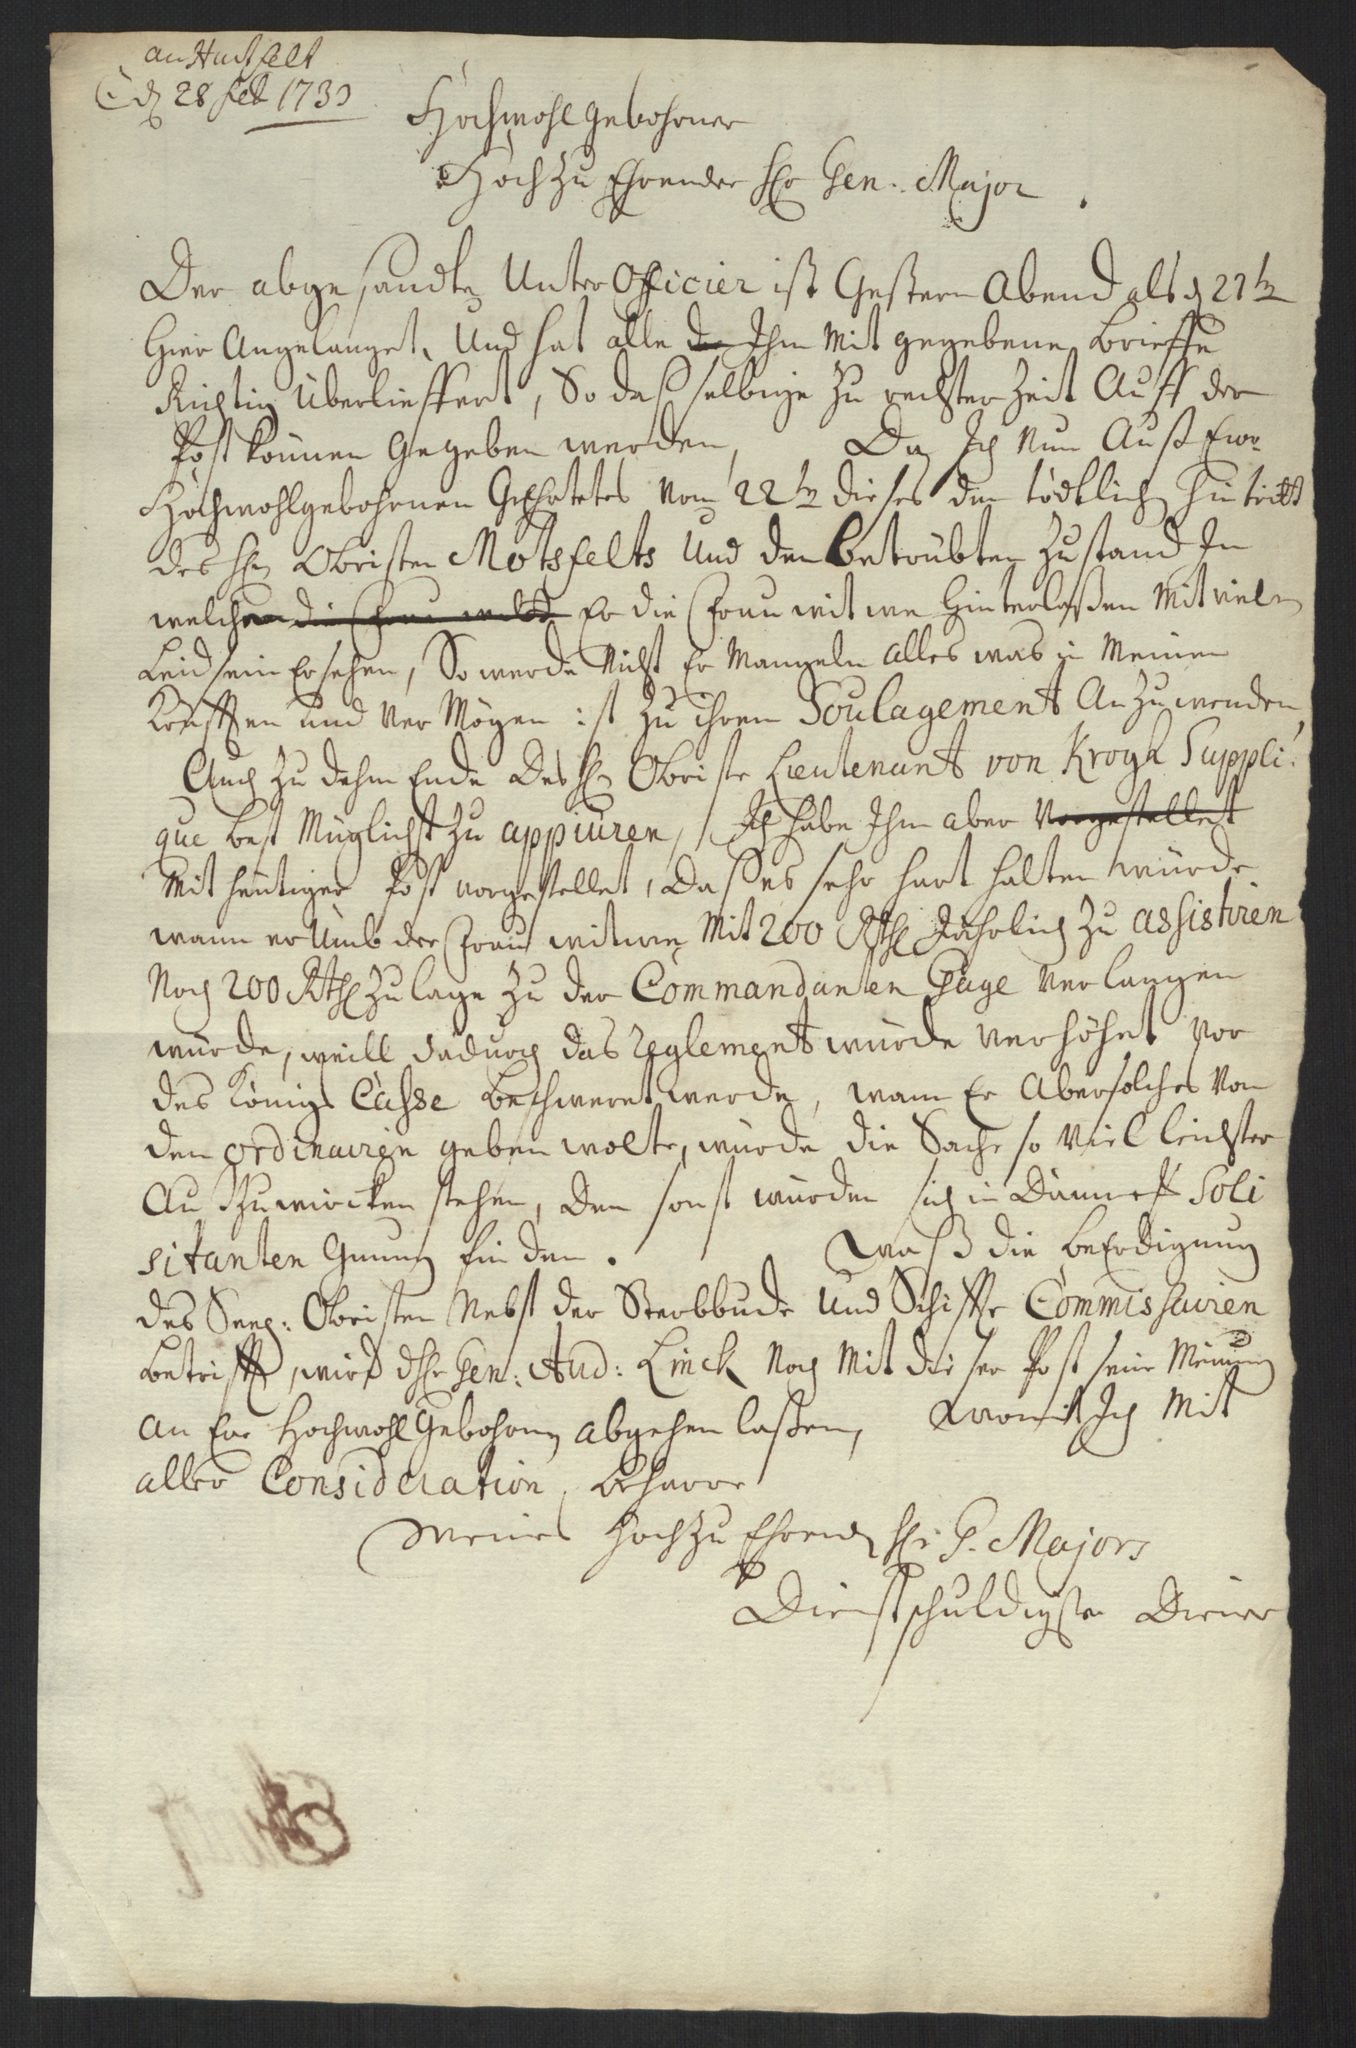 an Hausfelt
C. d. 28 feb 1733
Hochwohlgebohrner
Hoch zu Ehrender Hr Gen. Major.
Der abgesandte Unter Officier ist Gestern Abend als d 27ten
hier Angelanget, Und hat alle de Ihm Mit gegebene Brieffe
Richtig Überlieffert, So daß selbige zu rechter Zeit Auff der
Post können Gegeben werden, Da Ich Nun Auß Ewr
Hochwohlgebohrnen Geehrtetes Vom 22ten dieses den tödtlich Hintritt
des Hn Obristen Motsfelts Und den betrübten Zustand In
welchen die Frau Er die Frau witwe Hinterlaßen Mit vielen
Leidsein Ersehen, So werde Nicht Er Mangeln alles was in Meinen
Kräfften und Ver Mögen ist zu ihrem Soulagement Anzuwenden,
Auch zu dehm Ende Des H Obriste Lieutenant von Krogh Suppli-
que best Müglichst zu appiuren, Ich habe Ihm aber Vorgestellet
Mit heutiger Post vorgestellet, Daß es sehr hart halten würde
wann er Umb der Frau witwe Mit 200 Rthl Jährlich zu assistiren
Noch 200 Rthl Zulage zu der Commandanten Gage Verlangen
würde, weill dadurch das Reglement würde Verhöhet Vor
des Königs Casse beschweret werde, wann Er Aber solches Von
den ordinairen geben wolte, würde die Sache so Viel leichter
Außzuwircken stehen, Den sonst würden sich in Dännem Soli
sitanten Gnung finden. Waß die beErdigung
des Seel: Obristen Nebst der Sterbbude Und Schiffs Commissairen
betrifft, wird dHr Gen: Aud: Linck Noch Mit dieser Post seine Meinung
an Ew Hochwohl Gebohrnen abgehen laßen, Womit Ich Mit
aller Consideration, beharre
Meines Hoch zu Ehrenden Hr. G. Majors
Dienstschuldigster Diener